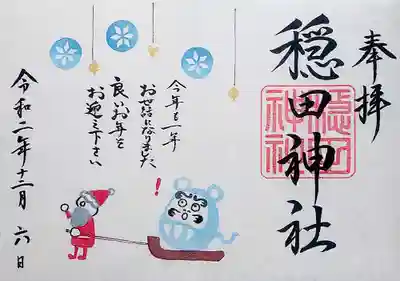 奉拝
穏田神社
穏田神社
今年も一年
お世話になりました
良いお年を
お迎え下さい
!
令和二年十二月六日